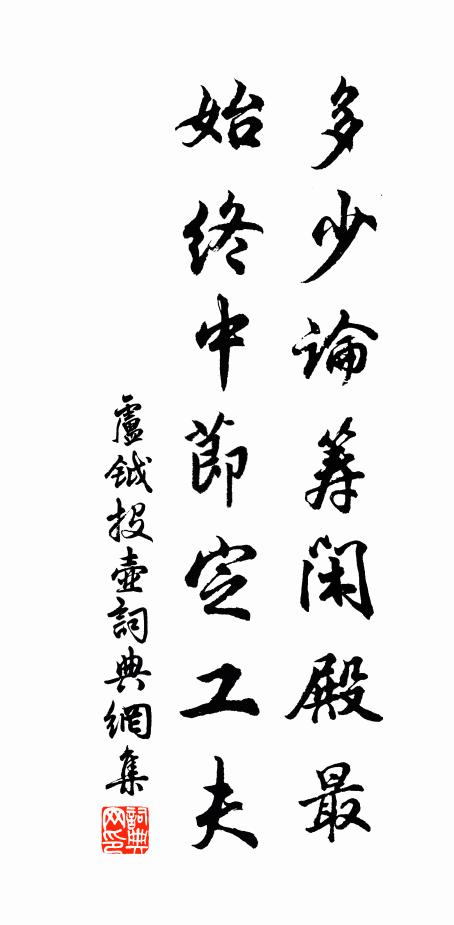 多少論筹閑殿最
始終中莭定工夫
盧鉞投壺詞典網集
詞典網印